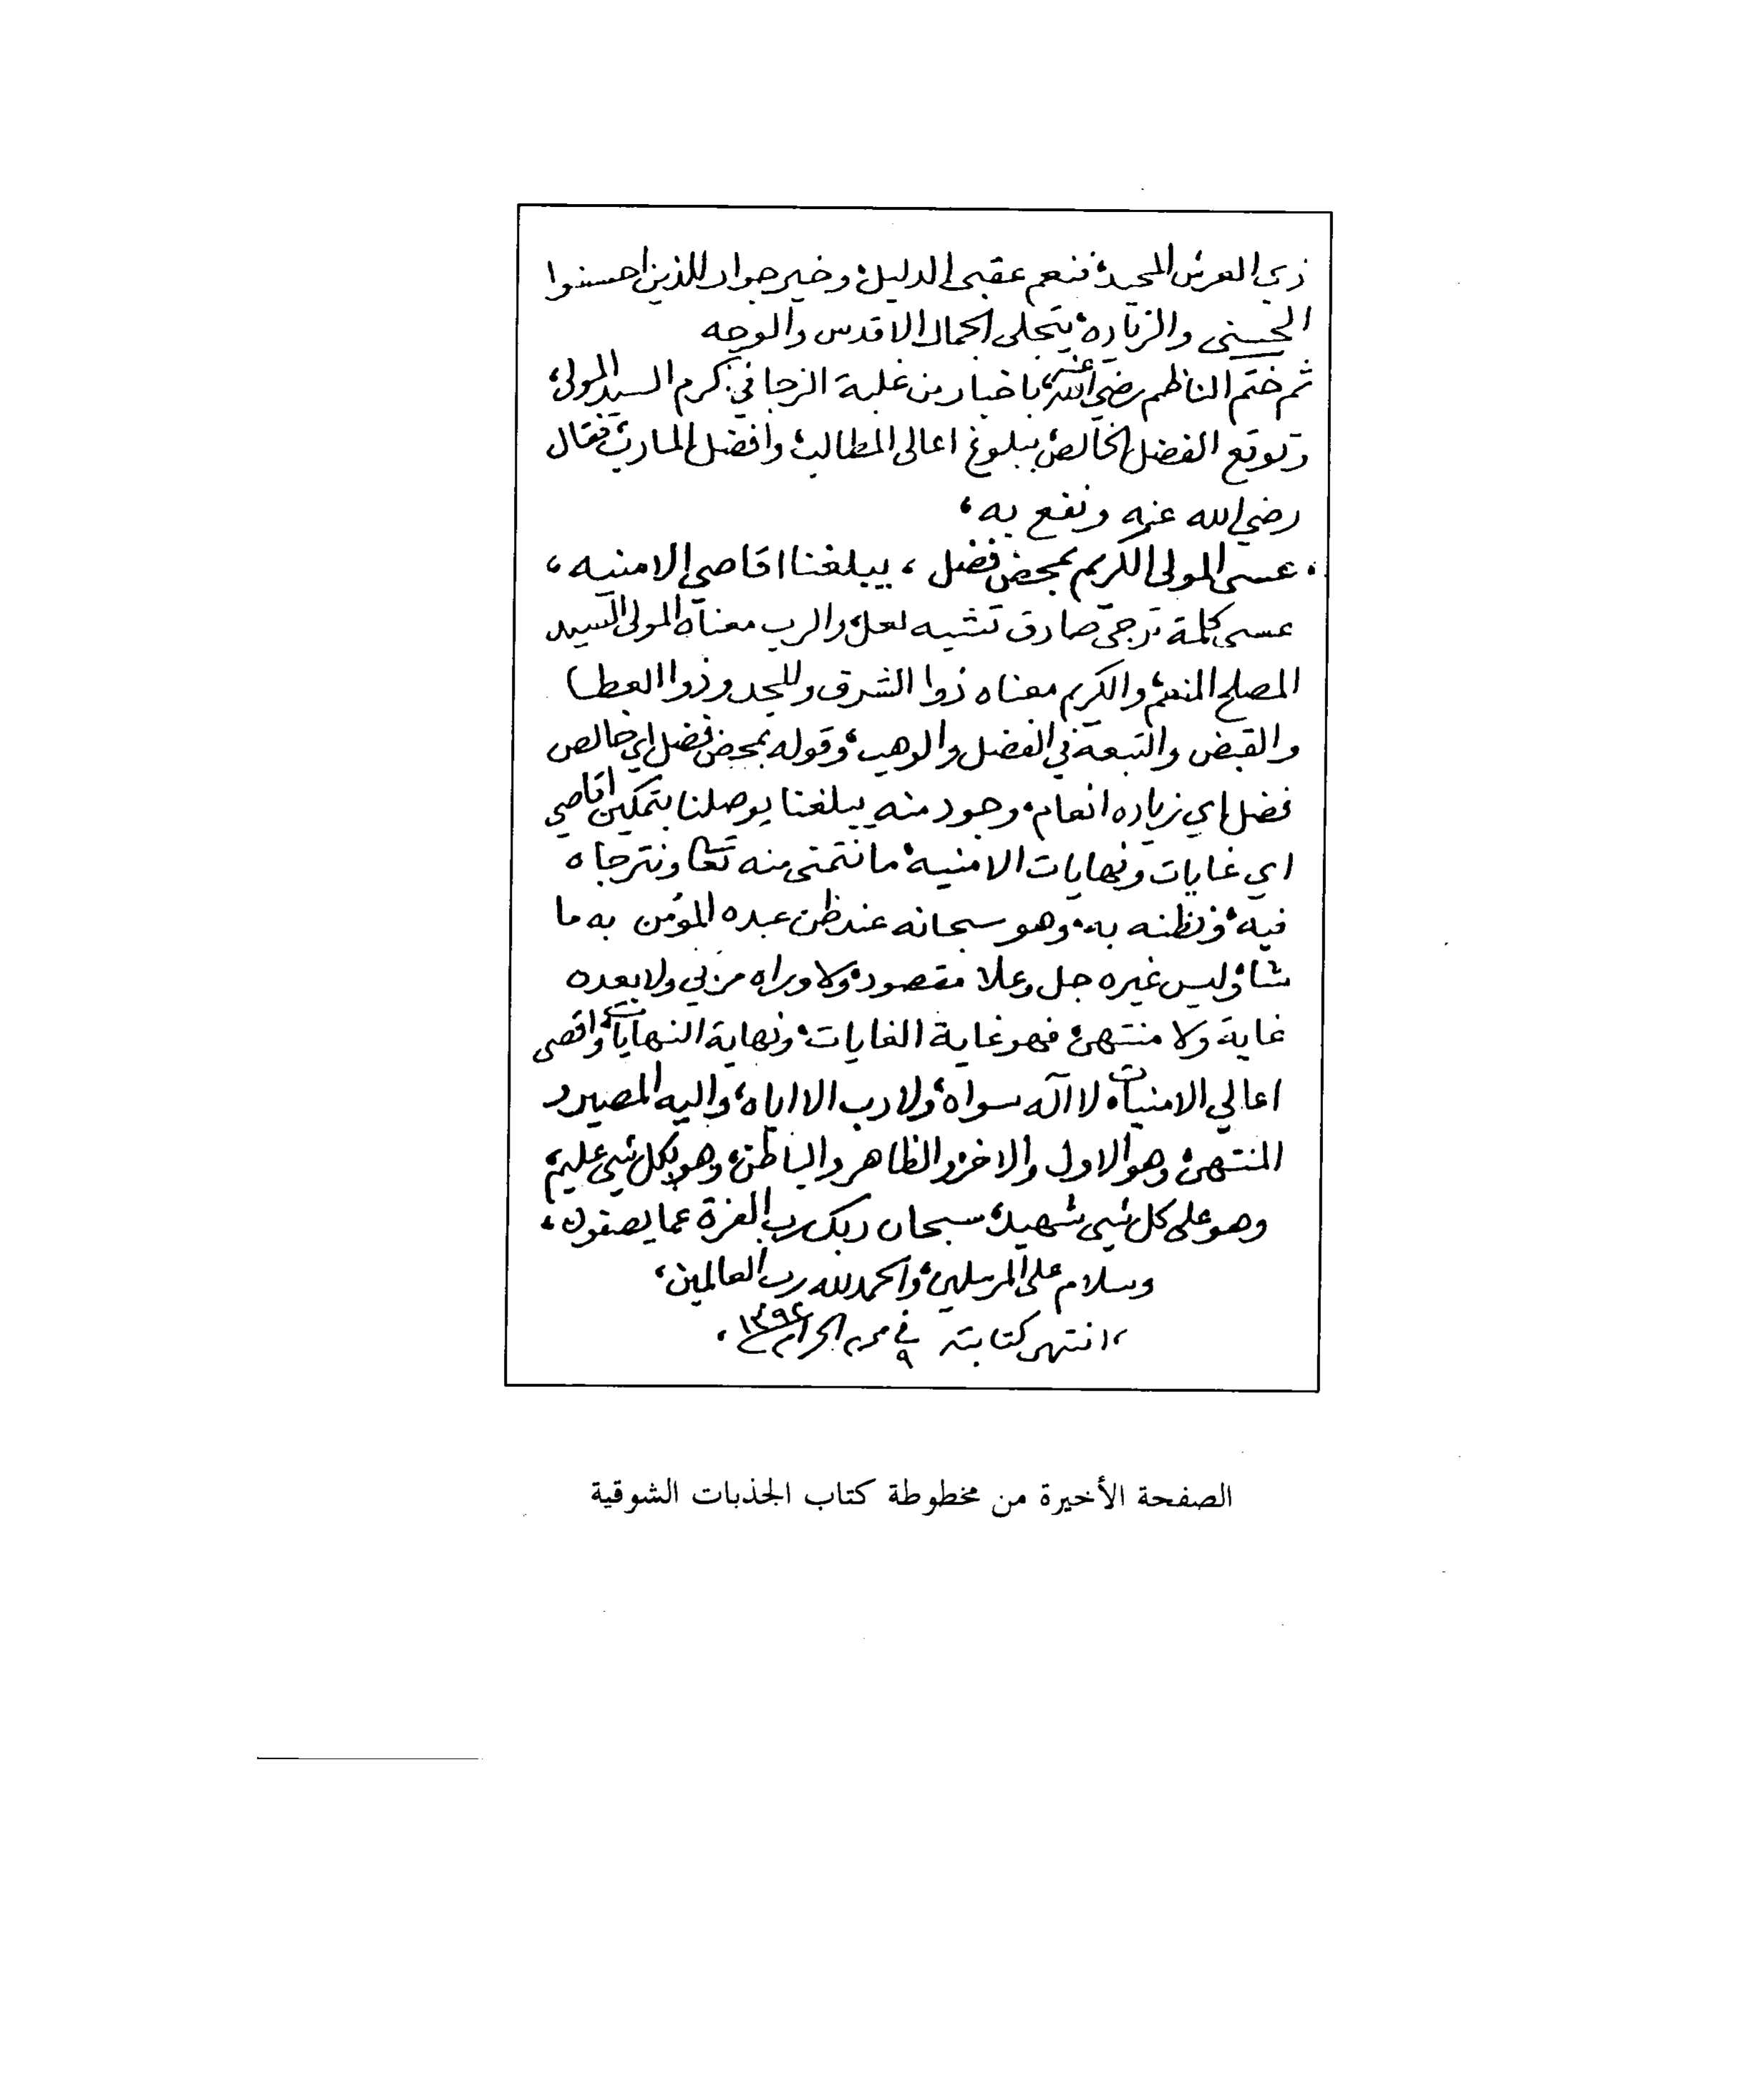 ذي العرش المجيد، فنعم عقبى الدليل، وخير جوار للذين احسنوا
الحسنى والزياره، يتجلى الجمال الاقدس والوجه
ثم ختم الناظم رضي الله عنه، با خبار من غلبة الرجا في كرم السيد المولى،
وتوقع الفضل الخالص، ببلوغ اعالى المطالب، وافضل المارب، فقال
رضي الله عنه ونفع به،
، عسى المولى الكريم بمحض فضل ، يبلغنا اقاصي الامنيه ،
عسى كلمة ترجى صادق تشبه لعل، والرب معناه المولى السيد
المصلح المنعم، والكريم معناه ذوا الشرف والمجد وذوا العطا
والقبض والتبعة في الفضل والوهب، وقوله بمحض فضل اي خالص
فضل اي زياده انعام، وجود منه يبلغنا يوصلنا بتمكين اقاصي
اي غايات ونهايات الامنيه، ما نتمنى منه تعا ونترجاه
فيه، ونظنه به، وهو سبحانه عند ظن عبده المؤمن به ما
شا، وليس غيره جل وعلا مقصود، ولا وراه مرمي ولا بعده
غاية ولا منتهى، فهو غاية الغايات، ونهاية النهايات، واقصى
اعالي الامنيات، لا آله سواه، ولا رب الا اياه، واليه المصير و
المنتهى، وهو الاول والاخر، والظاهر والباطن، وهو بكل شيى عليم،
وهو على كل شيى شهيد، سبحان ربك رب العزة عما يصفون،
وسلام على المرسلين، والحمد لله رب العالمين،
، انتهى كتابته في ٩ محرم الحرام ١٣٩٤ ،
الصفحة الأخيرة من مخطوطة كتاب الجذبات الشوقية